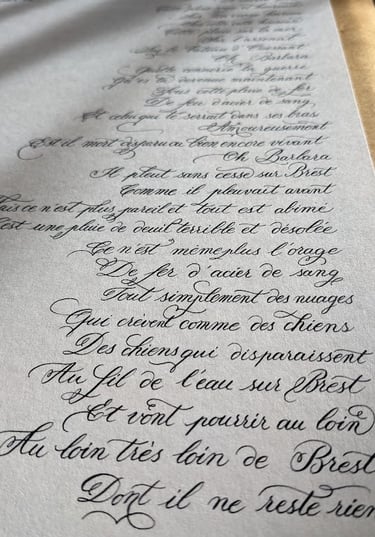 Oh Barbara
Quelle connerie la guerre
Qu'es tu devenue maintenant
Sous cette pluie de fer
De feu d'acier de sang
Et celui qui te serrait dans ses bras
Amoureusement
Est il mort disparu ou bien encore vivant
Oh Barbara
Il pleut sans cesse sur Brest
Comme il pleuvait avant
ce n'est plus pareil et tout est abimé
est une pluie de deuil terrible et désolée
Ce n'est même plus l'orage
De fer d'acier de sang
Tout simplement des nuages
Qui crèvent comme des chiens
Des chiens qui disparaissent
Au fil de l'eau sur Brest
Et vont pourrir au loin
Au loin très loin de Brest
Dont il ne reste rien